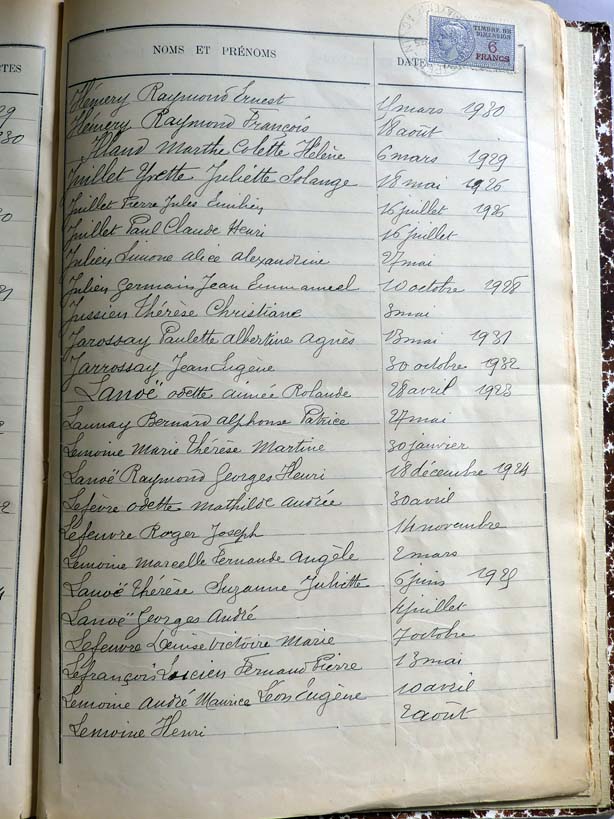 TIMBRE DE
DIMENSION
6
FRANCS
NOMS ET PRÉNOMS DATE
Hémery Raymond Ernest 11 mars 1930
Hémery Raymond François 18 août
Illand Marthe Colette Hélène 6 mars 1929
Juillet Yvette Juliette Solange 18 mai 1926
Juillet Pierre Jules Emilien 16 juillet 1926
Juillet Paul Claude Henri 16 juillet
Julien Simone Alice Alexandrine 27 mai
Julien Germain Jean Emmanuel 10 octobre 1928
Jussien Thérèse Christiane 3 mai
Jarossay Paulette Albertine Agnès 13 mai 1931
Jarrossay Jean Eugène 30 octobre 1932
Lanoë Odette Aimée Rolande 28 avril 1923
Launay Bernard Alphonse Patrice 27 mai
Lemoine Marie Thérèse Martine 30 janvier
Lanoë Raymond Georges Henri 18 décembre 1924
Lefèvre Odette Mathilde Andrée 30 avril
Lefeuvre Roger Joseph 14 novembre
Lemoine Marcelle Fernande Angèle 2 mars
Lanoë Thérèse Suzanne Juliette 6 juin 1925
Lanoë Georges André juillet
Lefeuvre Louise Victoire Marie 7 octobre
Lefrançois Lucien Fernand Pierre 13 mai
Lemoine André Maurice Léon Eugène 10 avril
Lemoine Henri 2 août